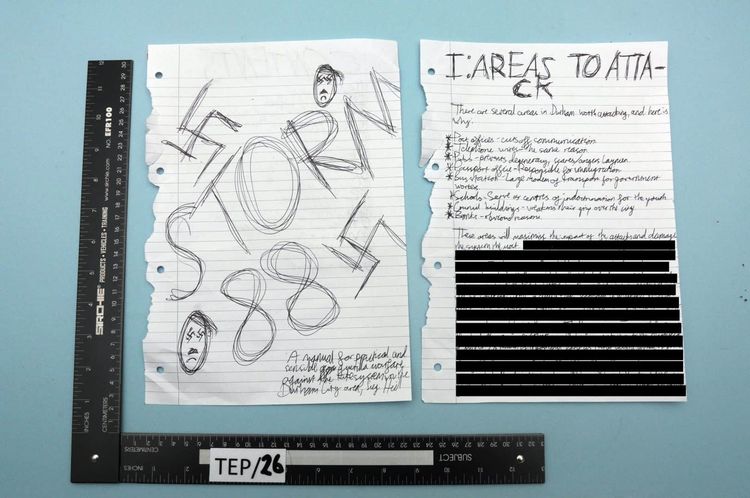 STORM
88
A manual for practical and
sensible guerrilla warfare
against the system in the
Durham City area, Sieg Heil
I: AREAS TO ATTA-
CK
There are several areas in Durham worth attacking, and here is
why.
* Post offices - cuts off communication
* Telephone wires - the same reason
* Pubs - prevents degeneracy,
* Council office - Responsible for
* Bus station - Large modes of transport for government
workers
* Schools - Serve as centres of indoctrination for the youth
* Council buildings - weakens their grip over the city
* Banks - obvious reasons
These areas will maximise the impact of the attacks and damage
the system the most.
SIRCHIE
PRODUCTS • VEHICLES • TRAINING
www.sirchie.com
NO. EFR100
INCHES
CENTIMETERS
SUBJECT
TEP/26